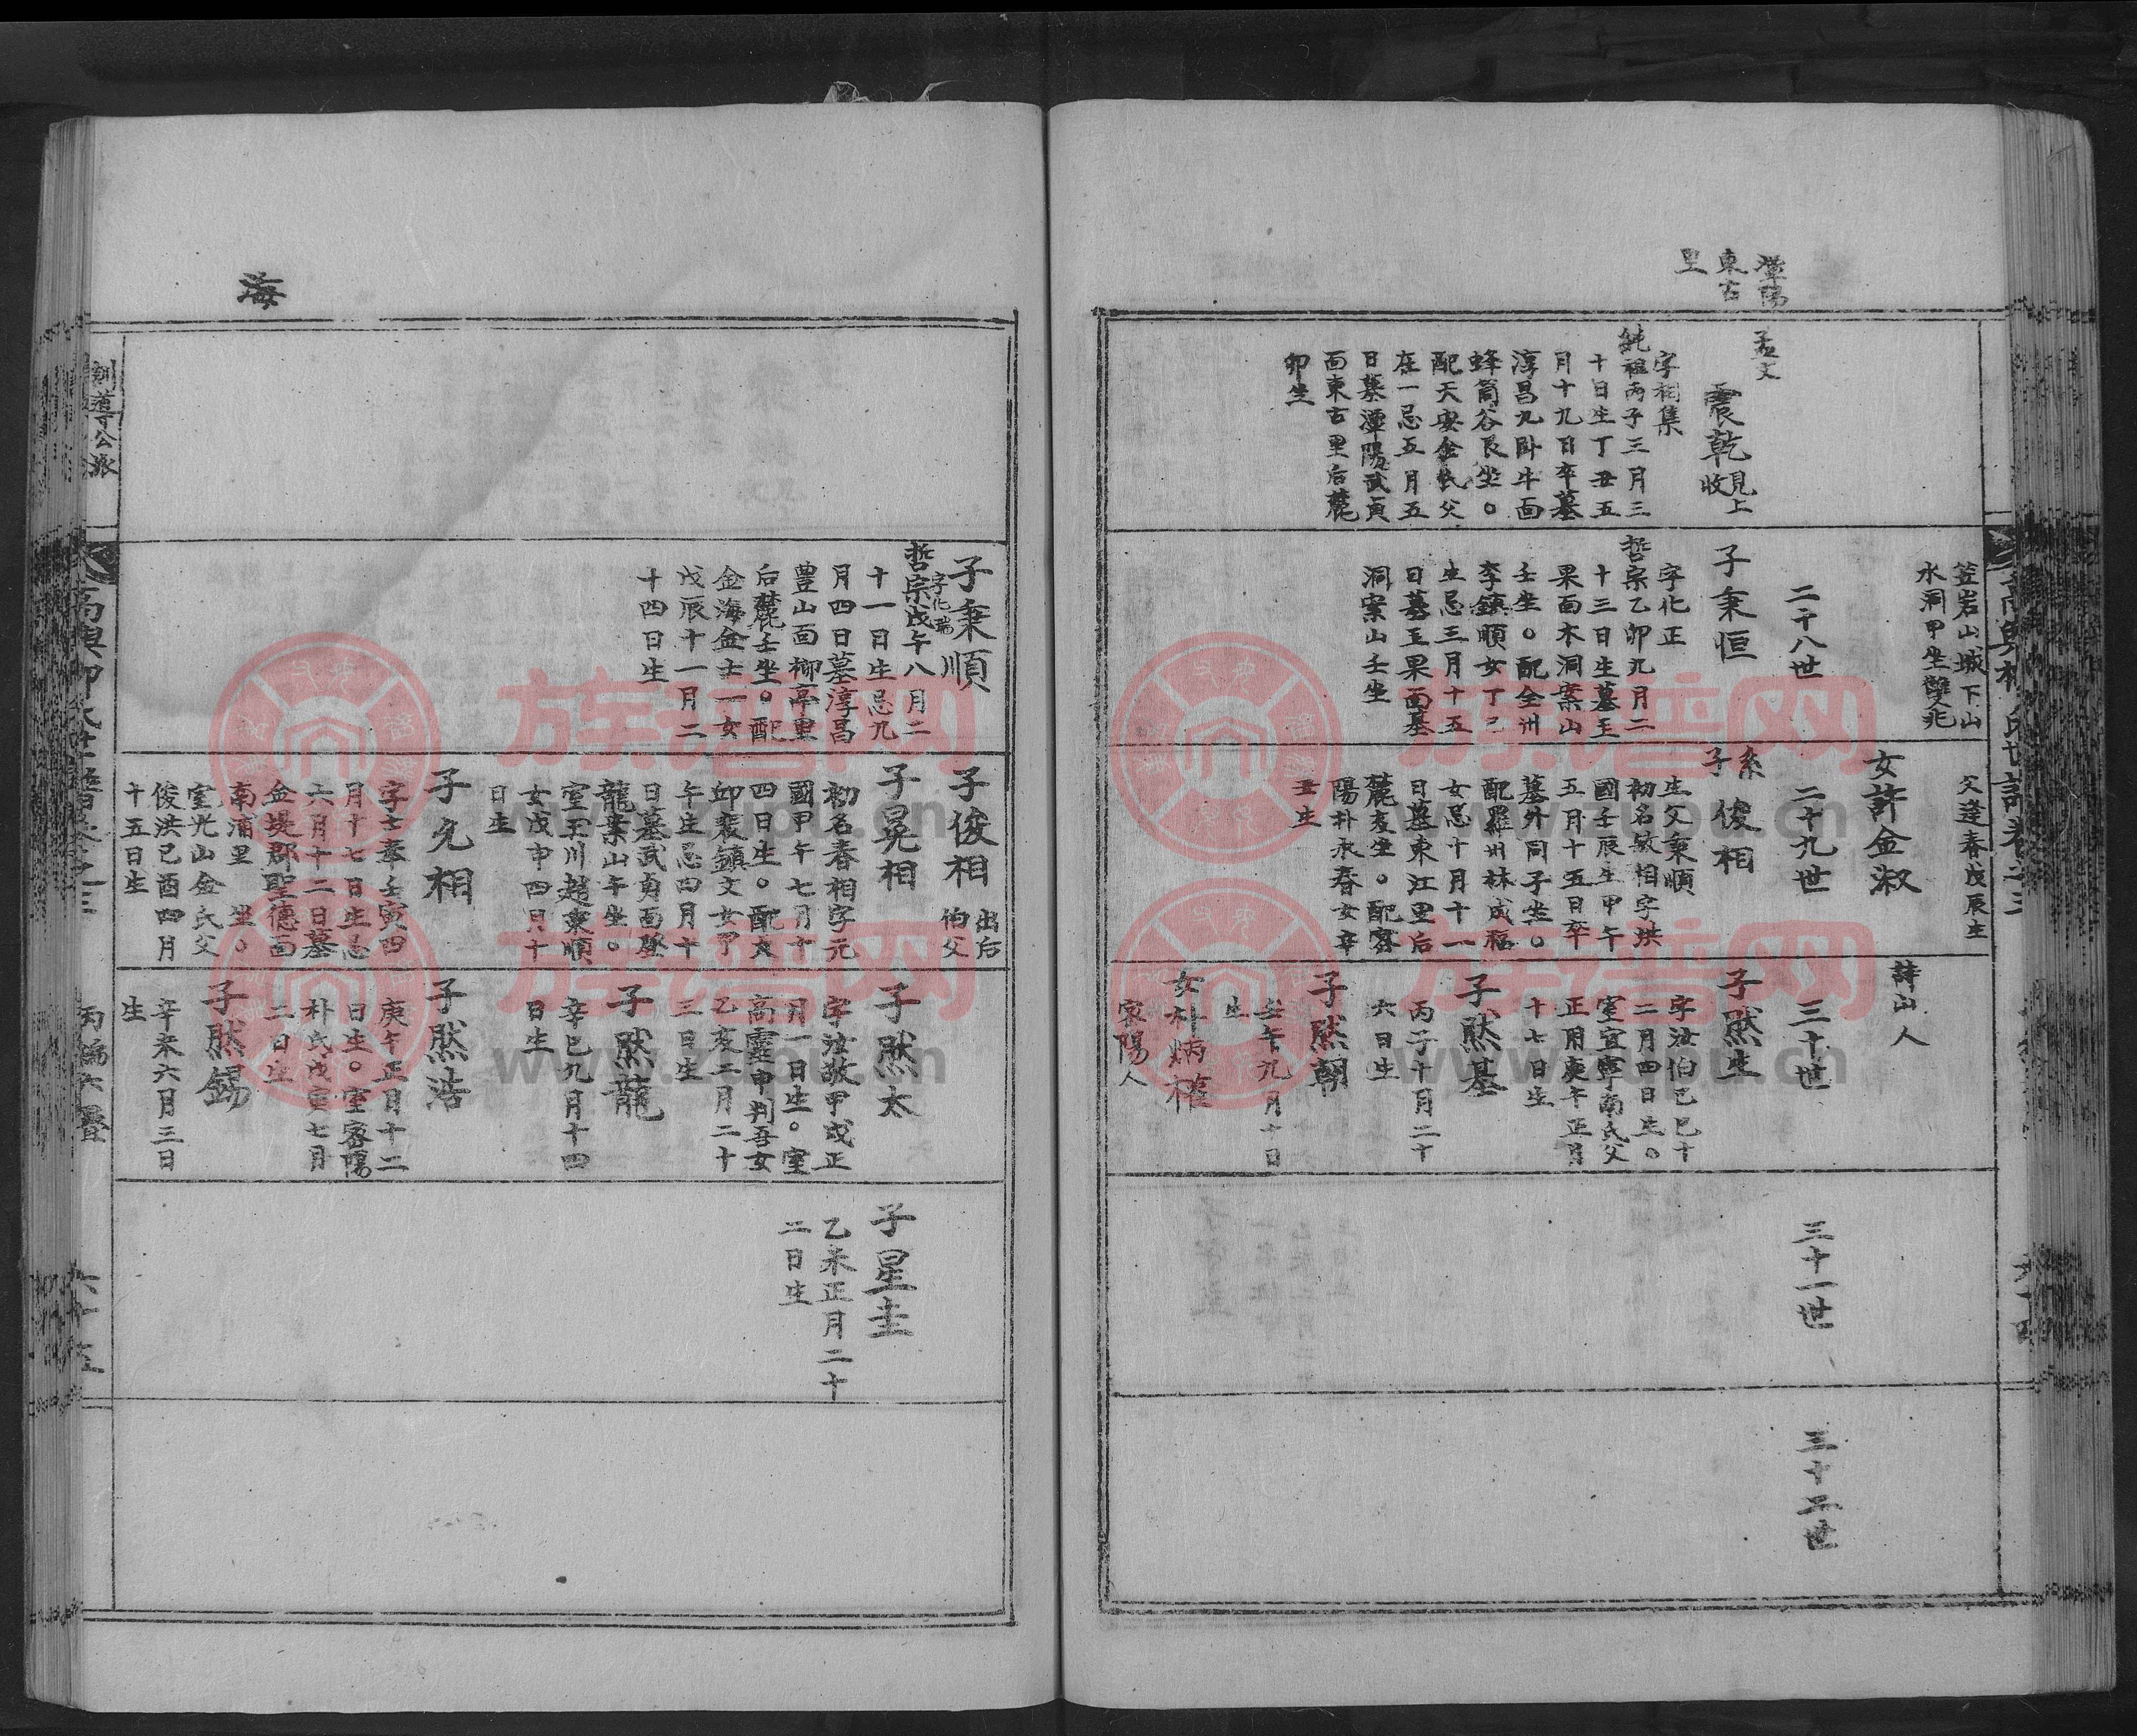 潭陽
東古
里
孟文
震乾
見上
收
字相集
純祖丙子三月三
十日生丁丑五
月十九日卒墓
淳昌九卧牛面
蜂筒谷艮坐○
配天安金氏父
在一忌五月五
日墓潭陽武貞
面東古里后麓
卯坐
笠岩山城下山
水洞甲坐雙兆
二十八世
子秉恒
字化正
哲宗乙卯九月二
十三日生墓玉
果面木洞案山
壬坐○配全州
李鎮順女丁巳
生忌三月十五
日墓玉果面基
洞案山壬坐
父逢春戊辰生
女許金淑
二十九世
系
子
俊相
生父秉順
初名敏相字洪
國壬辰生甲午
五月十五日卒
墓外同子坐○
配羅州林成福
女忌十月十一
日墓東江里后
麓亥坐○配密
陽朴永春女辛
丑生
詩山人
三十世
子然生
字汝伯己巳十
二月四日生○
室宜寧南氏父
正用庚午正月
十七日生
子然基
丙子十月二十
六日生
子然朝
壬午九月十日
生
女朴炳權
密陽人
三十一世
三十二世
海
子秉順
字化瑞
哲宗戊午八月二
十一日生忌九
月四日墓淳昌
豊山面柳亭里
后麓壬坐○配
金海金士一女
戊辰十一月二
十四日生
子俊相
出后
伯父
子晃相
初名春相字元
國甲午七月十
四日生○配大
邱裴鎮文女甲
午生忌四月十
日墓武貞面盤
龍案山午坐○
室玉川趙東順
女戊申四月十
日生
子允相
字士奉壬寅四
月十七日生忌
六月十二日墓
金堤郡聖德面
南浦里 坐○
室光山金氏父
俊洪己酉四月
十五日生
子然太
字汝敬甲戌正
月一日生○室
高靈申判吾女
乙亥二月二十
三日生
子然龍
辛巳九月十四
日生
子然浩
庚午正月十二
日生○室密陽
朴氏戊寅七月
二日生
子然錫
辛未六月三日
生
子星圭
乙未正月二十
二日生
訓導公派
高興柳氏世譜卷之三
丙編六疊
六十五